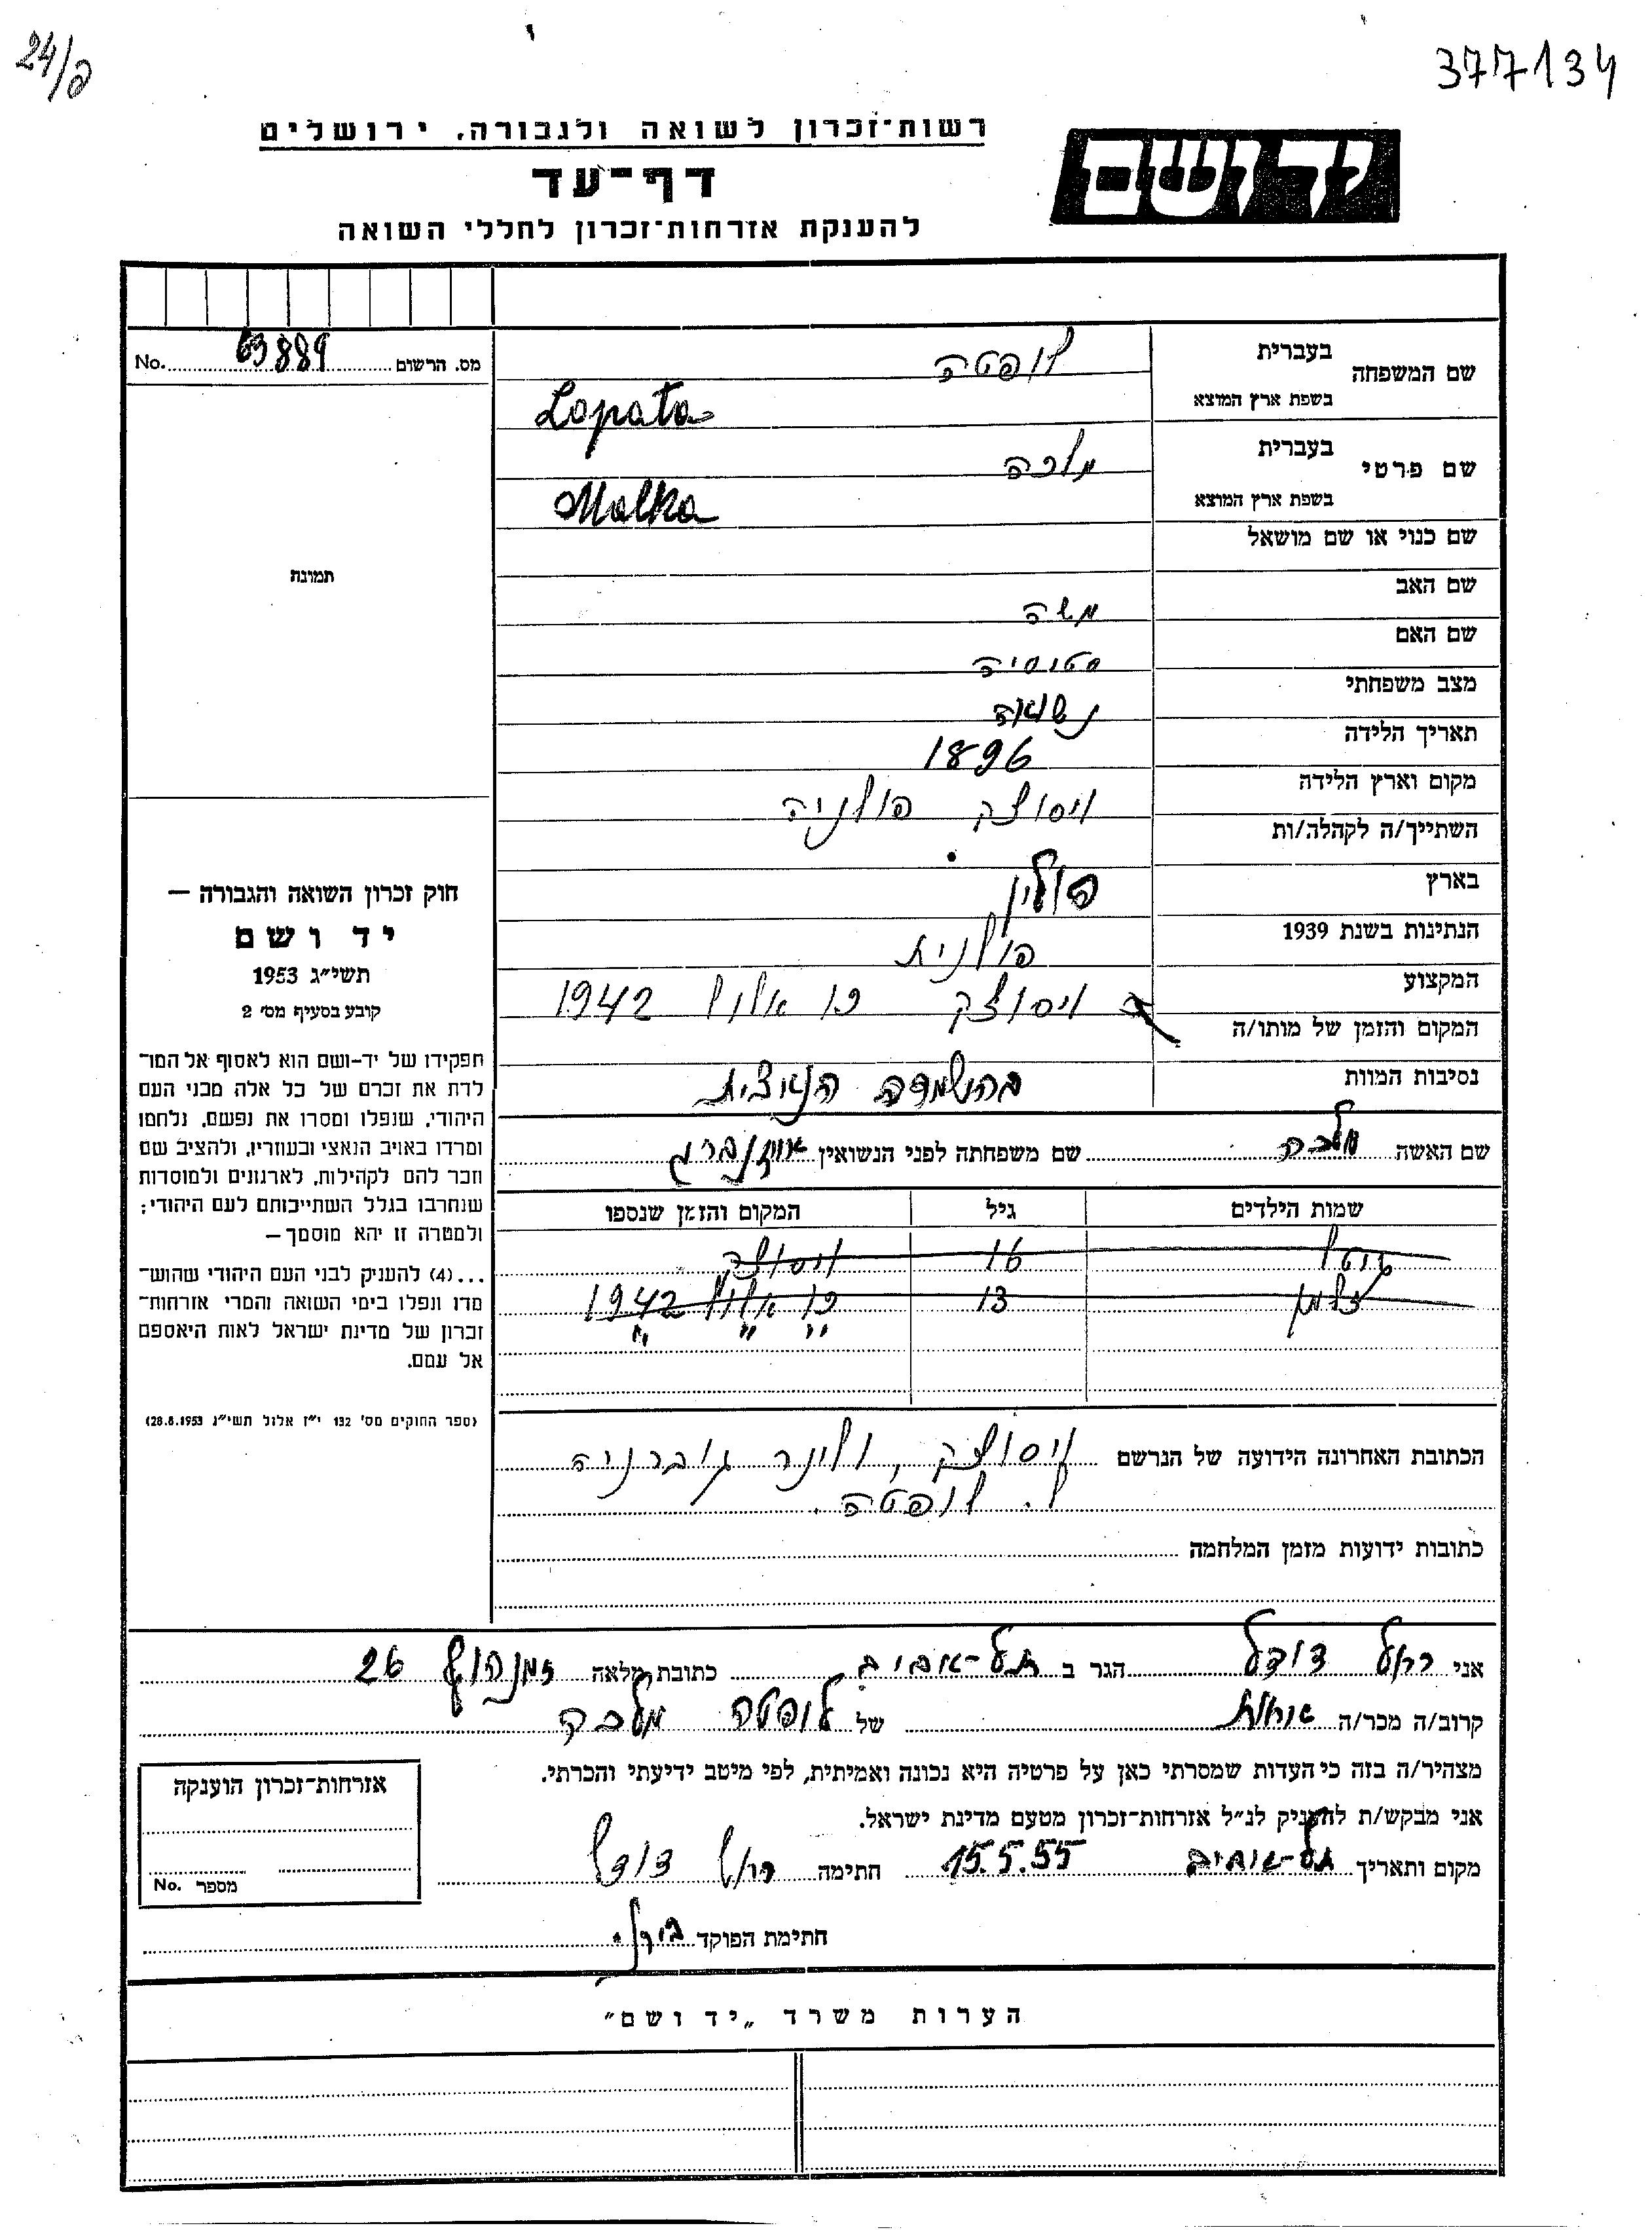 24/ב
377134
רשות־זכרון לשואה ולגבורה, ירושלים
דף־עד
להענקת אזרחות־זכרון לחללי השואה
יד ושם
מס. הרשום 63889 No.
תמונה
חוק זכרון השואה והגבורה —
יד ושם
תשי״ג 1953
קובע בסעיף מס׳ 2
תפקידו של יד-ושם הוא לאסוף אל המו־
לדת את זכרם של כל אלה מבני העם
היהודי, שנפלו ומסרו את נפשם, נלחמו
ומרדו באויב הנאצי ובעוזריו, ולהציב שם
וזכר להם לקהילות, לארגונים ולמוסדות
שנחרבו בגלל השתייכותם לעם היהודי;
ולמטרה זו יהא מוסמך —
...(4) להעניק לבני העם היהודי שהוש־
מדו ונפלו בימי השואה והמרי אזרחות־
זכרון של מדינת ישראל לאות היאספם
אל עמם.
(ספר החוקים מס׳ 132 י״ז אלול תשי״ג 28.8.1953)
שם המשפחה בעברית לופטה
בשפת ארץ המוצא Lopata
שם פרטי בעברית מלכה
בשפת ארץ המוצא Malka
שם כנוי או שם מושאל
שם האב משה
שם האם סטוסיה
מצב משפחתי נשואה
תאריך הלידה 1896
מקום וארץ הלידה ויסוצק פולניה
השתייך/ה לקהלה/ות
בארץ פולין
הנתינות בשנת 1939 פולנית
המקצוע
המקום והזמן של מותו/ה ויסוצק כו אלול 1942
נסיבות המוות בהשמדה הנאצית
שם האשה מלכה שם משפחתה לפני הנשואין
שמות הילדים גיל המקום והזמן שנספו
16 ויסוצק
זלמן 13 כו אלול 1942
הכתובת האחרונה הידועה של הנרשם ויסוצק, גוברניה
ל. לופטה.
כתובות ידועות מזמן המלחמה
אני רחל דודל הגר ב תל-אביב כתובת מלאה זמנהוף 26
קרוב/ה מכר/ה אחות של לופטה מלכה
מצהיר/ה בזה כי העדות שמסרתי כאן על פרטיה היא נכונה ואמיתית, לפי מיטב ידיעתי והכרתי.
אני מבקש/ת להעניק לנ״ל אזרחות־זכרון מטעם מדינת ישראל.
מקום ותאריך תל-אביב 15.5.55 חתימה רחל דודל
חתימת הפוקד
אזרחות־זכרון הוענקה
מספר No.
הערות משרד „יד ושם״